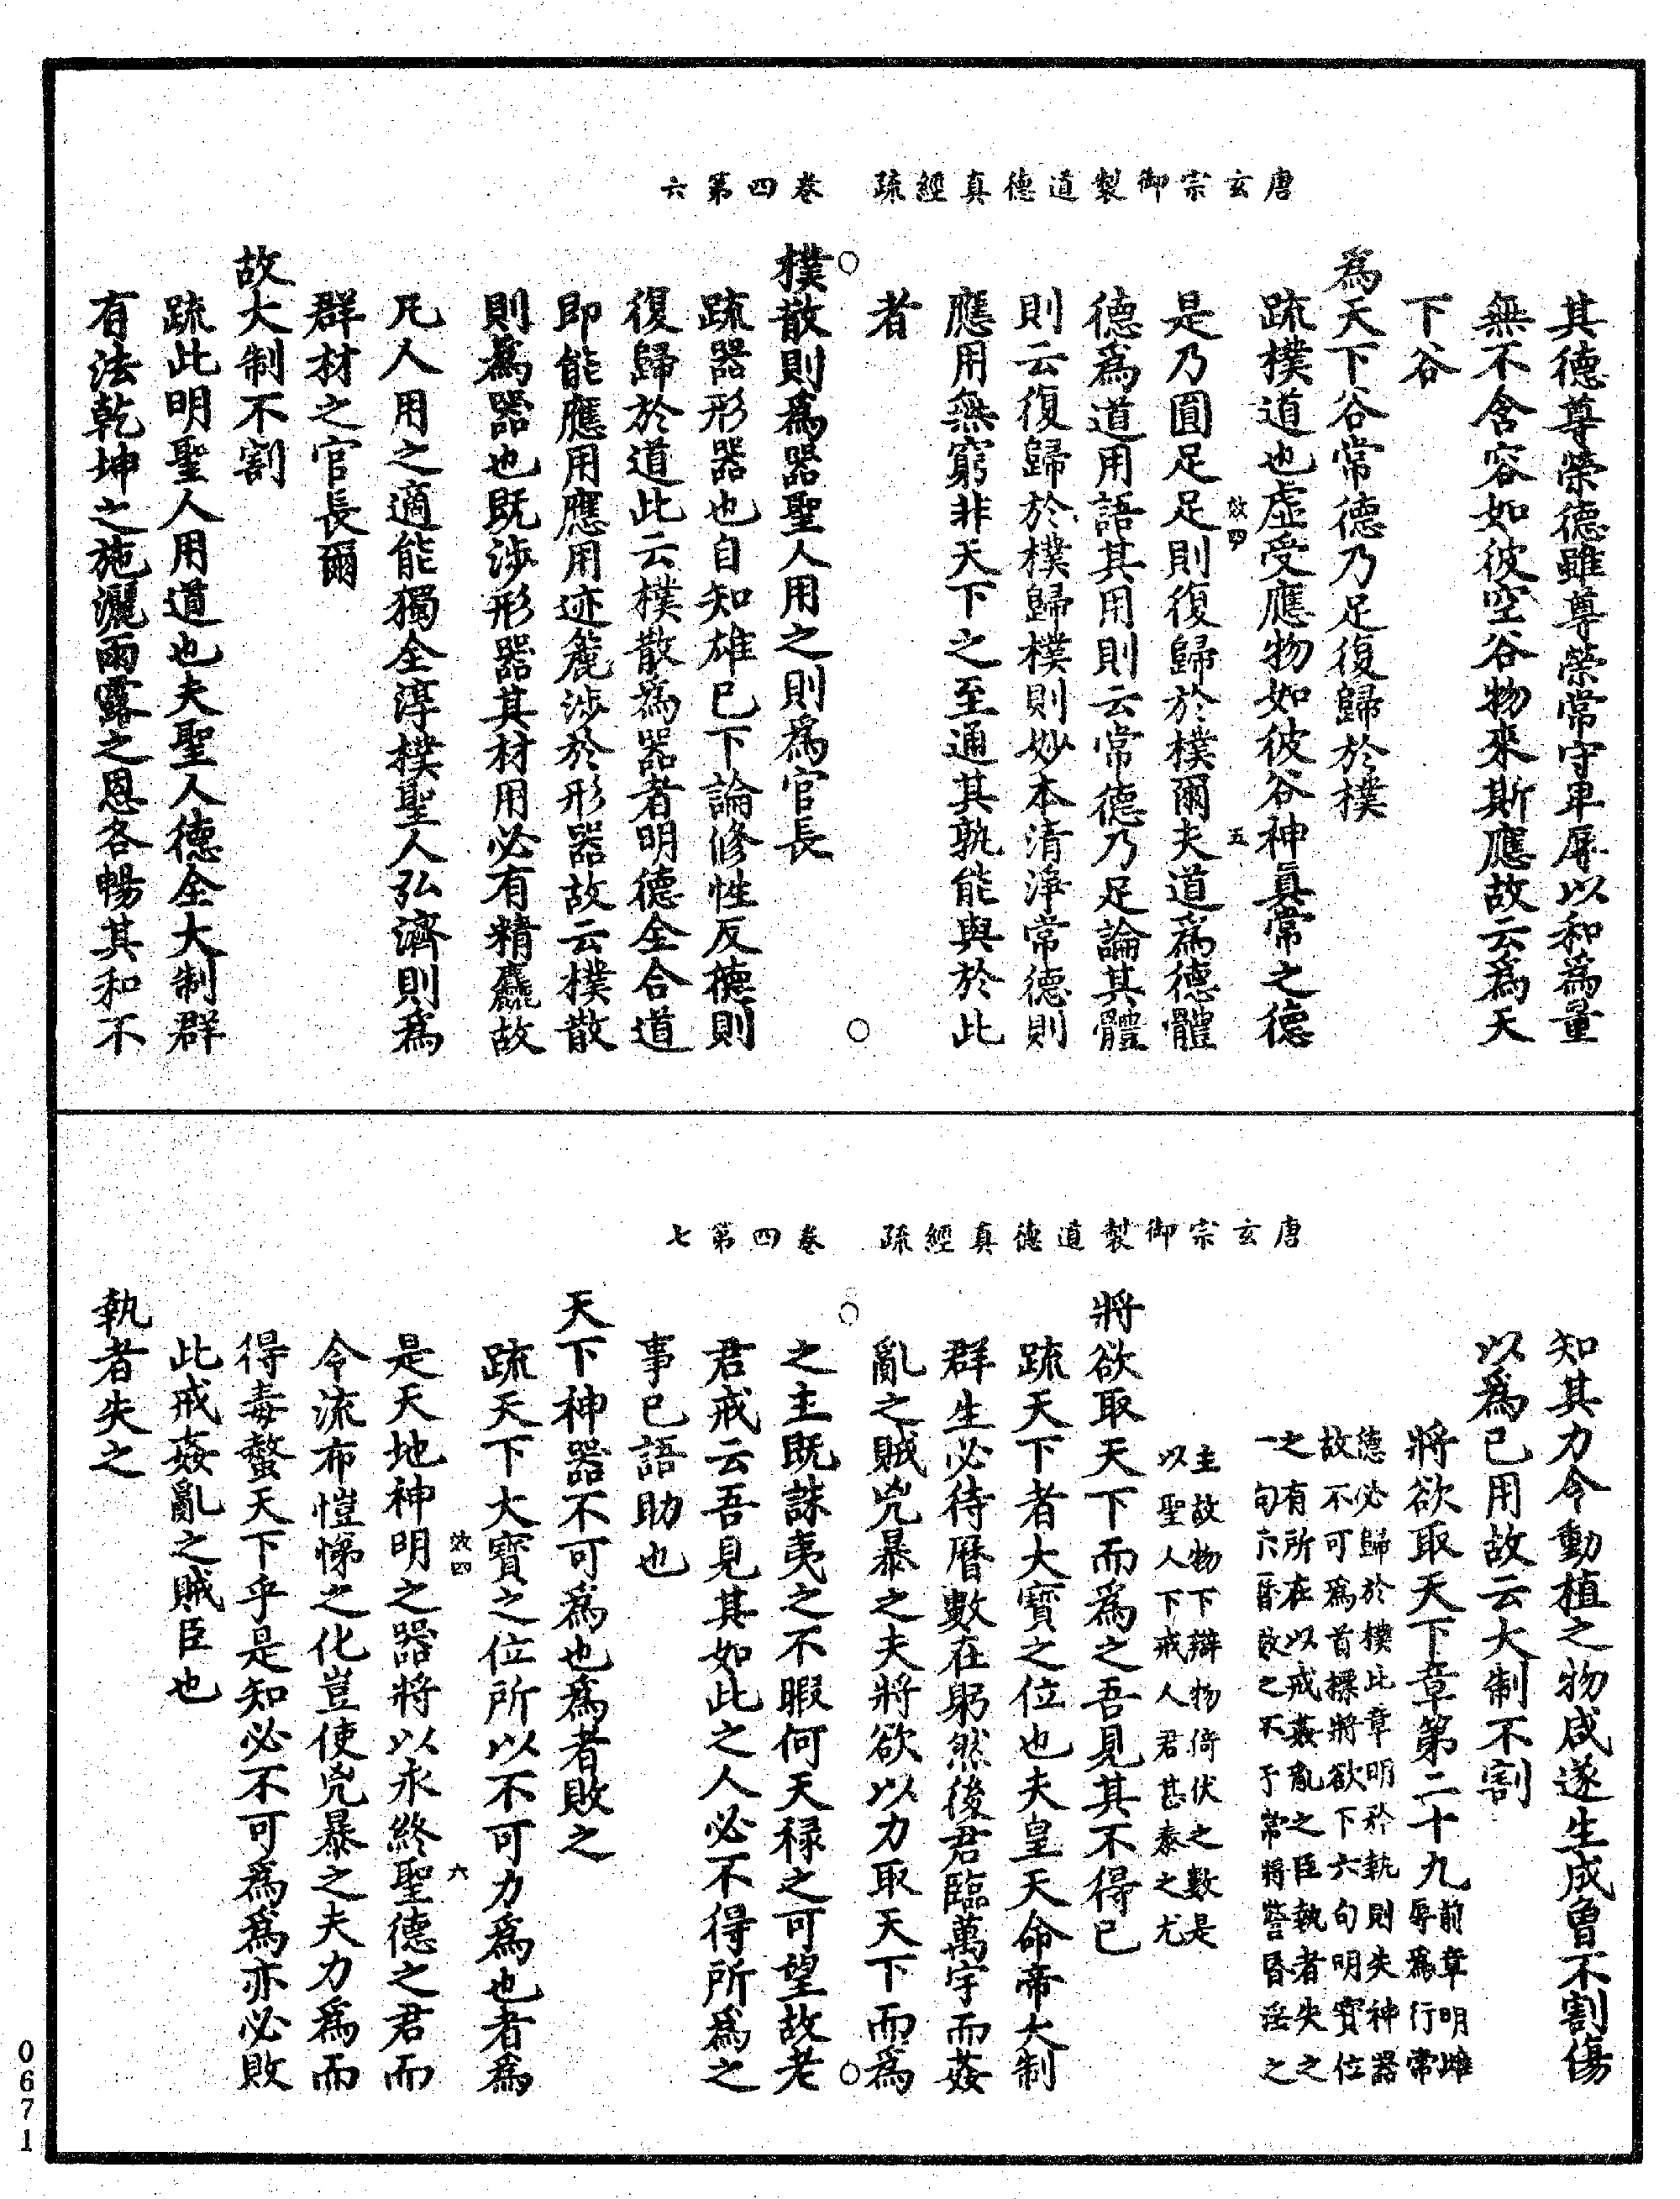 唐玄宗御製道德真經疏　卷四第六
其德尊榮德雖尊榮常守卑辱以和爲量
無不含容如彼空谷物來斯應故云爲天
下谷
爲天下谷常德乃足復歸於樸
疏樸道也虛受應物如彼谷神真常之德
效四　五
是乃圓足足則復歸於樸爾夫道爲德體
德爲道用語其用則云常德乃足論其體
則云復歸於樸歸樸則妙本清淨常德則
應用無窮非天下之至通其孰能與於此
者
樸散則爲器聖人用之則爲官長
疏器形器也自知雄已下論修性反德則
復歸於道此云樸散爲器者明德全合道
即能應用應用迹麄涉於形器故云樸散
則爲器也既涉形器其材用必有精麤故
凡人用之適能獨全淳樸聖人弘濟則爲
群材之官長爾
故大制不割
疏此明聖人用道也夫聖人德全大制群
有法乾坤之施灑雨露之恩各暢其和不
唐玄宗御製道德真經疏　卷四第七
知其力令動植之物咸遂生成曾不割傷
以爲己用故云大制不割
將欲取天下章第二十九
前章明雌
辱爲行常
德必歸於樸此章明矜執則失神器
故不可爲首標將欲下六句明寶位
之有所在以戒姦亂之臣執者失之
一句
之不
常將
之
主故物下辯物倚伏之數是
以聖人下戒人君甚泰之尤
將欲取天下而爲之吾見其不得已
疏天下者大寶之位也夫皇天命帝大制
群生必待曆數在躬然後君臨萬宇而姦
亂之賊兇暴之夫將欲以力取天下而爲
之主既誅夷之不暇何天祿之可望故老
君戒云吾見其如此之人必不得所爲之
事已語助也
天下神器不可爲也爲者敗之
疏天下大寶之位所以不可力爲也者爲
效四　六
是天地神明之器將以永終聖德之君而
令流布愷悌之化豈使兇暴之夫力爲而
得毒螫天下乎是知必不可爲爲亦必敗
此戒姦亂之賊臣也
執者失之
0671